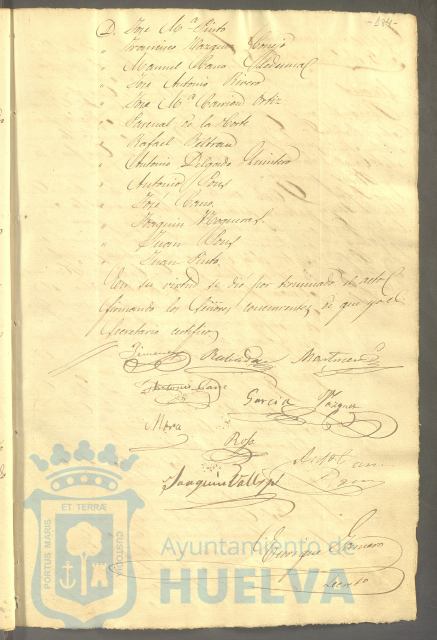 -184-
D. José Mª Pinto
" Francisco Vazquez
" Manuel Cano Ledesma
" José Antonio Rivero
" José Mª Carrion Ortiz
" Pascual de la Corte
Rafael Beltran
" Antonio Delgado Quintero
" Antonio Pons
" José Cano
" Joaquin Nogueras
" Juan Pons
" Juan Pinto
Con su virtud se dió por terminado el acto
firmando los Señores concurrentes, de que yo el
Secretario certifico
Jimenez Rabadan Martinez
Antonio
Garcia Vazquez
Mora
Rojo
Joaquin Vallejo
Enrique
PORTUS MARIS ET TERRÆ CUSTODIA
Ayuntamiento de
HUELVA